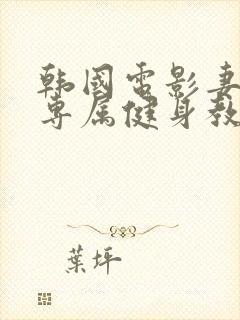 韩国电影妻
专属健身教
葉坪